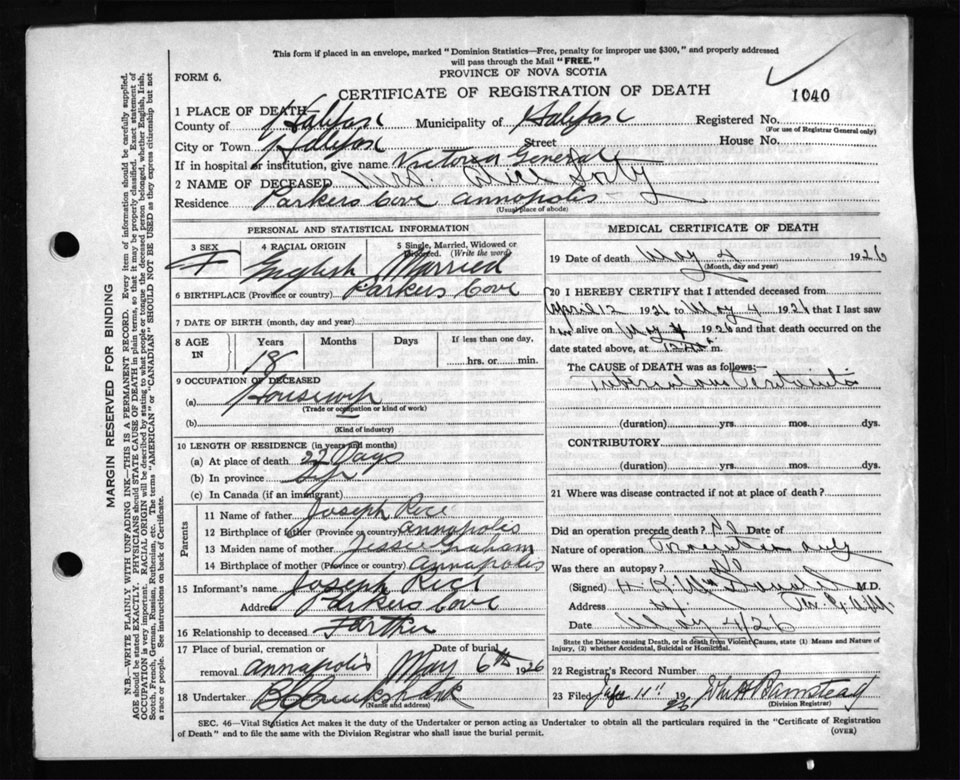 This form if placed in an envelope, marked "Dominion Statistics—Free, penalty for improper use $300," and properly addressed
will pass through the Mail "FREE."
FORM 6.
PROVINCE OF NOVA SCOTIA
CERTIFICATE OF REGISTRATION OF DEATH
1040
1 PLACE OF DEATH
County of Halifax Municipality of Halifax Registered No.
(For use of Registrar General only)
City or Town Halifax Street House No.
If in hospital or institution, give name Victoria General
2 NAME OF DECEASED Mrs. Alice
Residence Parkers Cove Annapolis
(Usual place of abode)
PERSONAL AND STATISTICAL INFORMATION
3 SEX F
4 RACIAL ORIGIN English
5 Single, Married, Widowed or Divorced. (Write the word) Married
6 BIRTHPLACE (Province or country) Parkers Cove
7 DATE OF BIRTH (month, day and year)
8 AGE IN Years 18 Months Days If less than one day, hrs. or min.
9 OCCUPATION OF DECEASED
(a) Housewife
(Trade or occupation or kind of work)
(b)
(Kind of industry)
10 LENGTH OF RESIDENCE (in years and months)
(a) At place of death 22 Days
(b) In province
(c) In Canada (if an immigrant)
Parents
11 Name of father Joseph Rice
12 Birthplace of father (Province or country) Annapolis
13 Maiden name of mother Jessie Graham
14 Birthplace of mother (Province or country) Annapolis
15 Informant's name Joseph Rice
Address Parkers Cove
16 Relationship to deceased Farther
17 Place of burial, cremation or removal Annapolis Date of burial May 6th 1926
18 Undertaker Cruikshank
(Name and address)
MEDICAL CERTIFICATE OF DEATH
19 Date of death May 4 1926
(Month, day and year)
20 I HEREBY CERTIFY that I attended deceased from
April 12 1926 to May 4 1926 that I last saw
h er alive on May 4 1926 and that death occurred on
date stated above, at m.
The CAUSE of DEATH was as follows:—
Tuberculous Peritonitis
(duration) yrs. mos. dys.
CONTRIBUTORY
(duration) yrs. mos. dys.
21 Where was disease contracted if not at place of death?
Did an operation precede death? Date of
Nature of operation
Was there an autopsy?
(Signed) M.D.
Address
Date May 4/26
State the Disease causing Death, or in death from Violent Causes, state (1) Means and Nature of
Injury, (2) whether Accidental, Suicidal or Homicidal.
22 Registrar's Record Number
23 Filed 11th 1926 Barnstead
(Division Registrar)
SEC. 46—Vital Statistics Act makes it the duty of the Undertaker or person acting as Undertaker to obtain all the particulars required in the "Certificate of Registration
of Death" and to file the same with the Division Registrar who shall issue the burial permit.
(OVER)
MARGIN RESERVED FOR BINDING
N.B.—WRITE PLAINLY WITH UNFADING INK—THIS IS A PERMANENT RECORD. Every item of information should be carefully supplied.
AGE should be stated EXACTLY. PHYSICIANS should STATE CAUSE OF DEATH in plain terms, so that it may be properly classified. Exact statement of
OCCUPATION is very important. RACIAL ORIGIN will be described by stating to what people or tongue the deceased person belonged, whether English, Irish,
Scotch, French, German, Russian, Ruthenian, etc. The terms "AMERICAN" or "CANADIAN" SHOULD NOT BE USED as they express citizenship but not
a race or people. See instructions on back of Certificate.